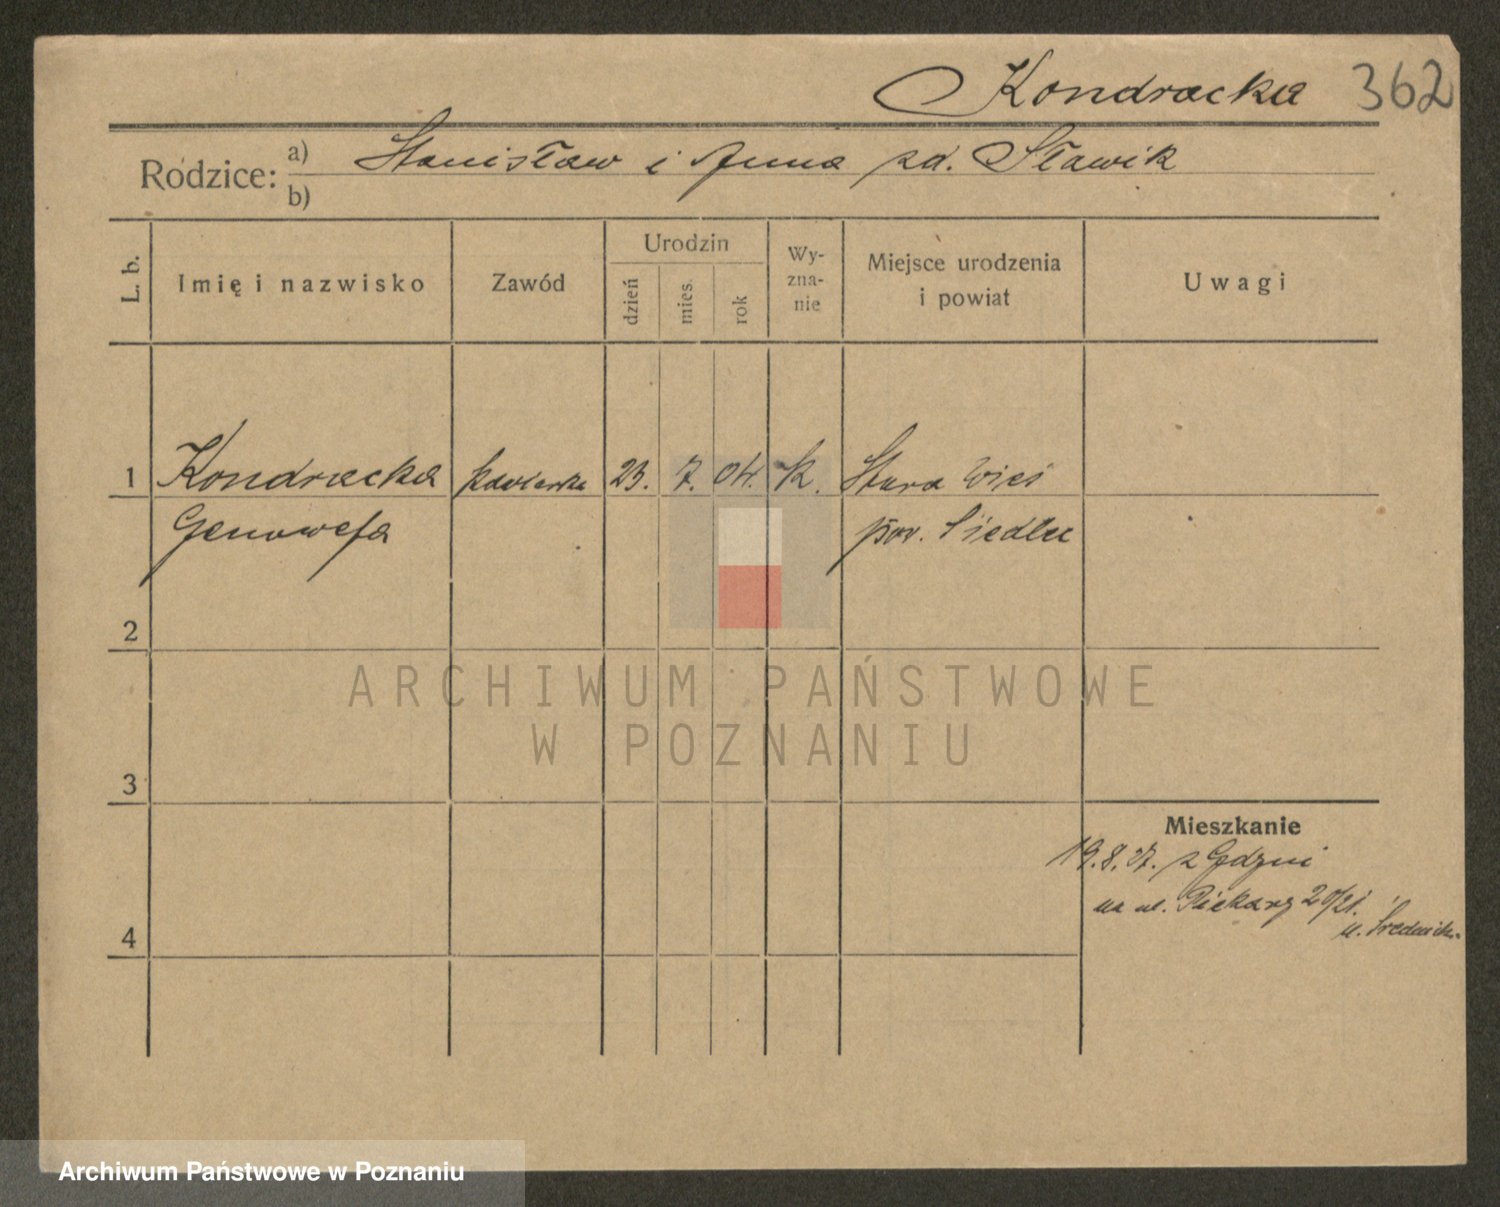 Kondracka 362
Rodzice: a) Stanisław i Anna zd. Sławik
b)
L. b. Imię i nazwisko Zawód Urodzin dzień mies. rok Wy-zna-nie Miejsce urodzenia i powiat Uwagi
1 Kondracka 23. 7. 04. k. Stara Wieś
Genowefa pow. Siedlce
2
ARCHIWUM PAŃSTWOWE
W POZNANIU
3
Mieszkanie
19.8.37. z Gdyni
na ul. Piekary 20/21.
4
Archiwum Państwowe w Poznaniu